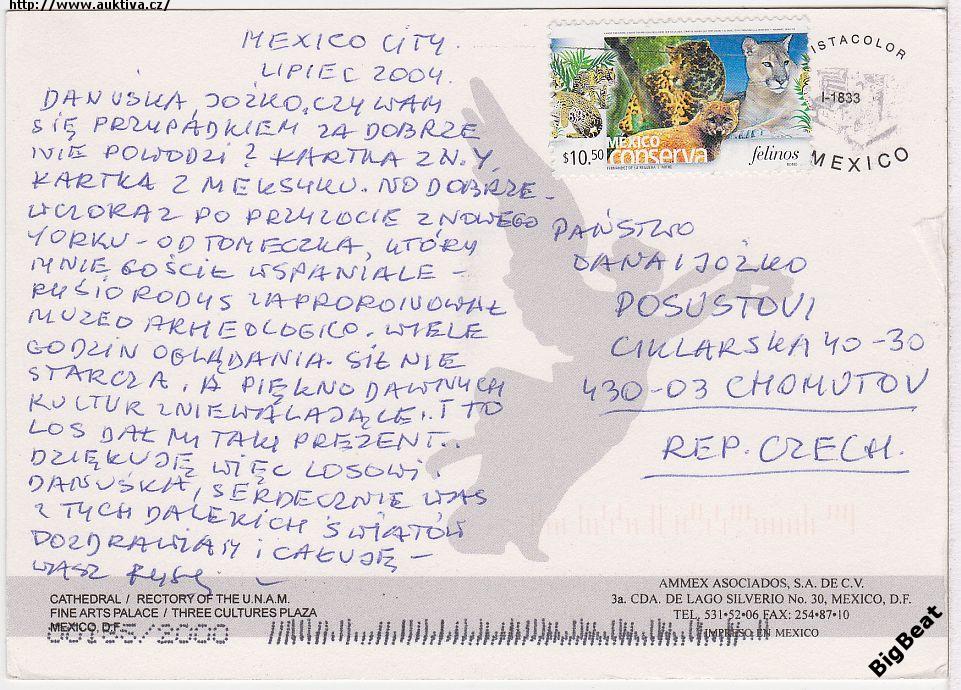 http://www.auktiva.cz/
MEXICO CITY.
LIPIEC 2004.
DANUSKA, JOŻKO, CZY WAM
SIĘ PRZYPADKIEM ZA DOBRZE
NIE POWODZI? KARTKA Z N.Y.
KARTKA Z MEKSYKU. NO DOBRZE.
WCZORAJ PO PRZYLOCIE Z NOWEGO
YORKU - OD TOMECZKA, KTÓRY
MNIE GOŚCIŁ WSPANIALE -
RYSIO RODYS ZAPROPONOWAŁ
MUZEO ARHEOLOGICO. WIELE
GODZIN OGLĄDANIA. SIŁ NIE
STARCZA, A PIĘKNO DAWNYCH
KULTUR ZNIEWALAJĄCE. I TO
LOS DAŁ MI TAKI PREZENT..
DZIĘKUJĘ WIĘC LOSOWI.
DANUSKA, SERDECZNIE WAS
Z TYCH DALEKICH ŚWIATÓW
POZDRAWIAM I CAŁUJĘ -
WASZ
MEXICO
conserva
$10.50
felinos
ISTACOLOR
I-1833
MEXICO
PAŃSTWO
DANA I JOŻKO
POSUSTOVI
CIKLARSKA 40-30
430-03 CHOMUTOV
REP. CZECH.
CATHEDRAL / RECTORY OF THE U.N.A.M.
FINE ARTS PALACE / THREE CULTURES PLAZA
MEXICO, D.F.
AMMEX ASOCIADOS, S.A. DE C.V.
3a. CDA. DE LAGO SILVERIO No. 30, MEXICO, D.F.
TEL. 531•52•06 FAX: 254•87•10
IMPRESO EN MEXICO
BigBeat